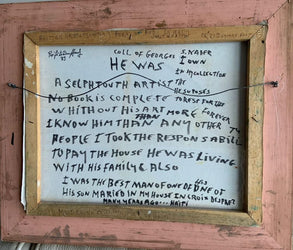 COLL OF GEORGES S. NADER
I OWN
HE WAS IN MY COLLECTION
A SELPHTOUTH ARTIST THE
HE SUPOSES
NO BOOK IS COMPLETE TO RESP FOR THE
WHITHOUT HIS ART MORE FOREVER
I KNOW HIM THAN ANY OTHER TO
PEOPLE I TOOK THE RESPONSABILL
TO PAY THE HOUSE HE WAS LIVING.
WITH HIS FAMILY & ALSO
I WAS THE BEST MAN OF ONE OF HIS
HIS SON MARIED IN MY HOUSE IN CROIX DESPREZ
MANY YEARS AGO... HAITI